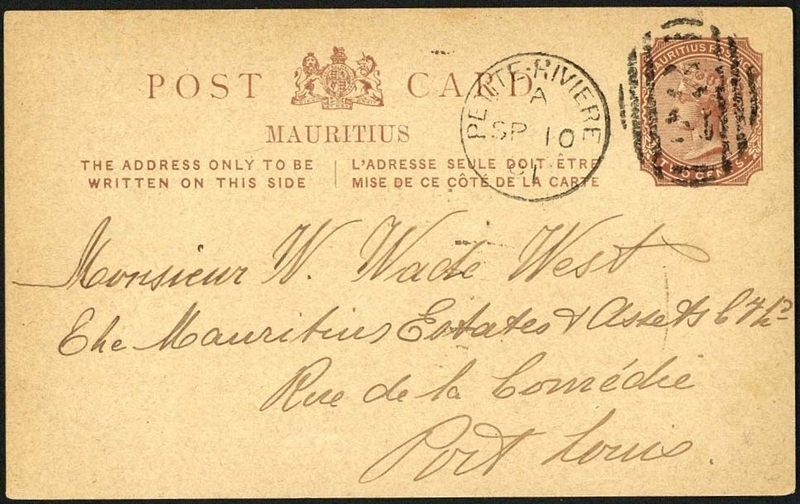 POST CARD
MAURITIUS
THE ADDRESS ONLY TO BE
WRITTEN ON THIS SIDE
L'ADRESSE SEULE DOIT ÊTRE
MISE DE CE CÔTE DE LA CARTE
PETITE-RIVIERE
A
SP 10
01
MAURITIUS POSTAGE
TWO CENTS
Monsieur W. Wade West
The Mauritius Estates & Assets
Rue de la Comédie
Port Louis